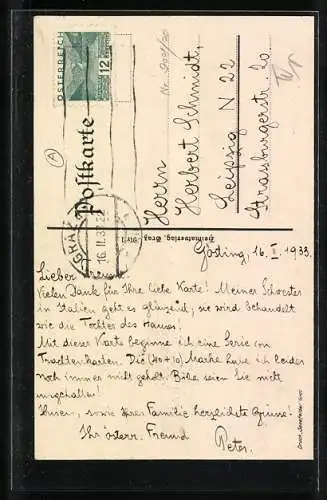 ÖSTERREICH
12
Postkarte
GRAZ
16. II. 33
Herrn
Herbert Schmidt,
Leipzig N 22
Strassburgerstr.
Heimatverlag, Graz
Gösting, 16. II. 1933.
Lieber
Vielen Dank für Ihre liebe Karte! Meiner Schwester
in Italien geht es glänzend; sie wird behandelt
wie die Tochter des Hauses!
Mit dieser Karte beginne ich eine Serie von
Trachtenkarten. Die (40+10) Marke habe ich leider
noch immer nicht geholt. Bitte seien Sie nicht
ungehalten!
Ihnen, sowie Ihrer Familie herzlichste Grüsse!
Ihr österr. Freund
Peter.